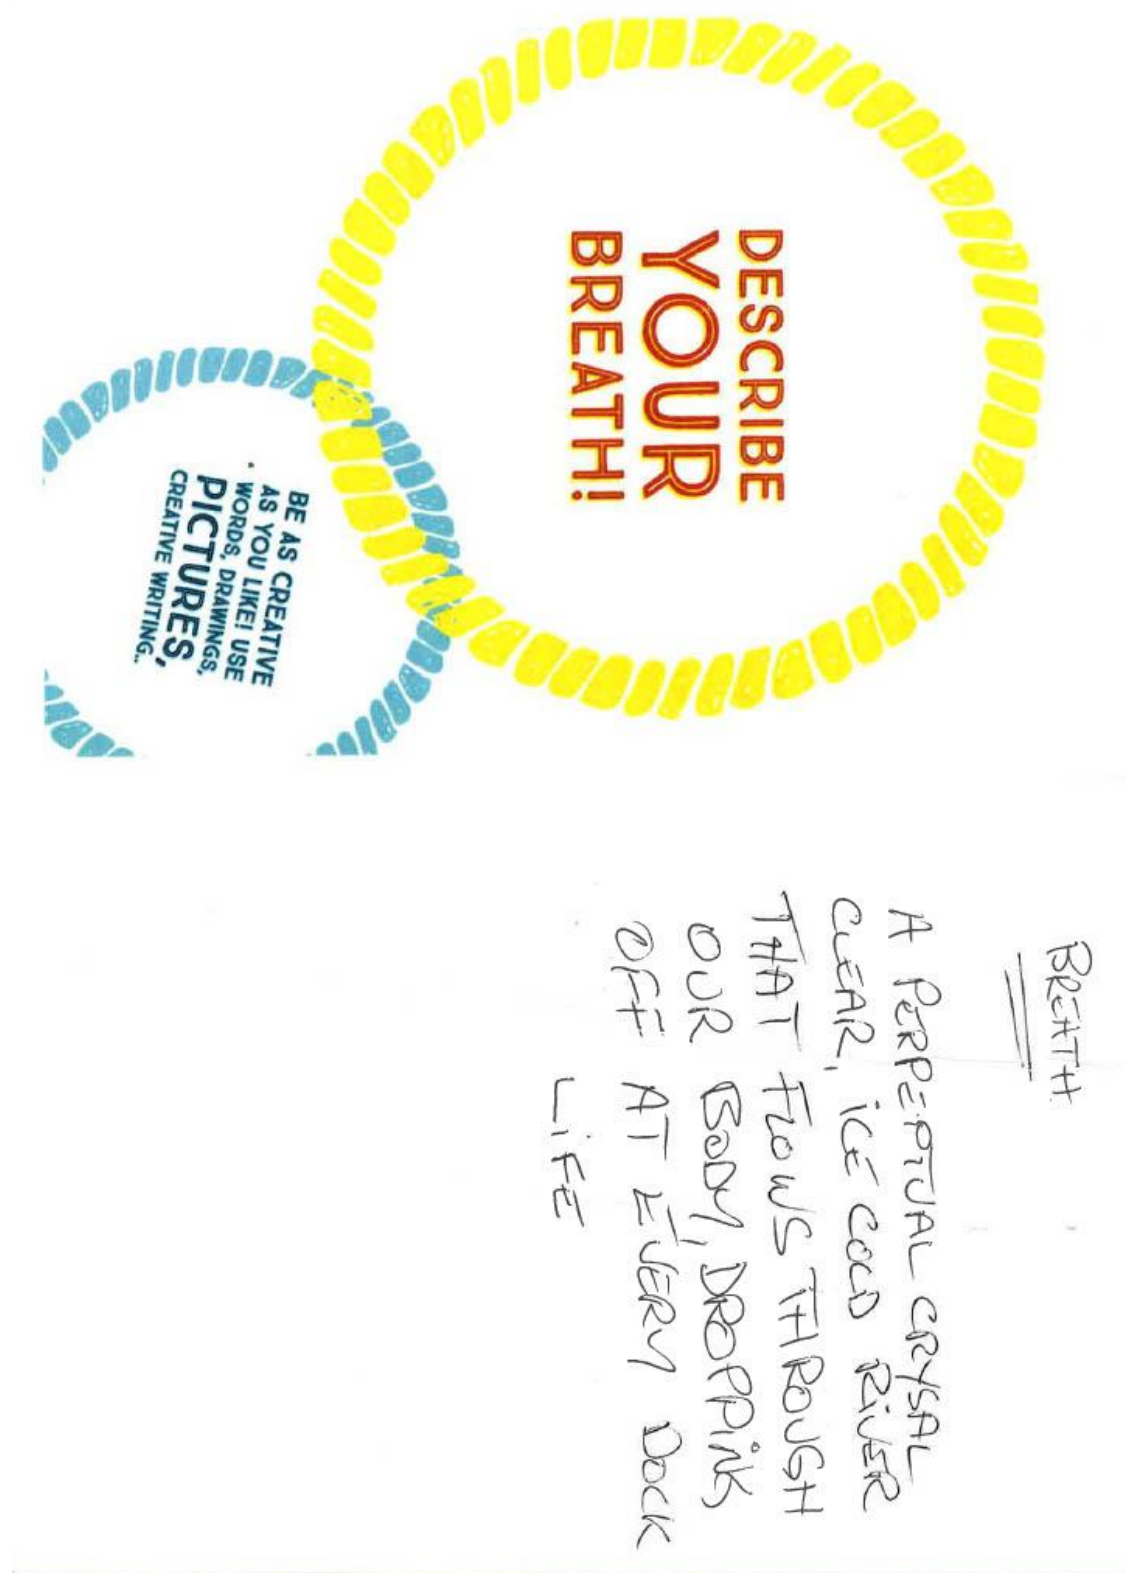 DESCRIBE
YOUR
BREATH!
BE AS CREATIVE
AS YOU LIKE! USE
WORDS, DRAWINGS,
PICTURES,
CREATIVE WRITING...
BREATH
A PERPEPTUAL CRYSAL
CLEAR, iCE COLD RiVER
THAT FLOWS THROUGH
OUR BODY, DROPPiNG
OFF AT EVERY DOCK
LiFE